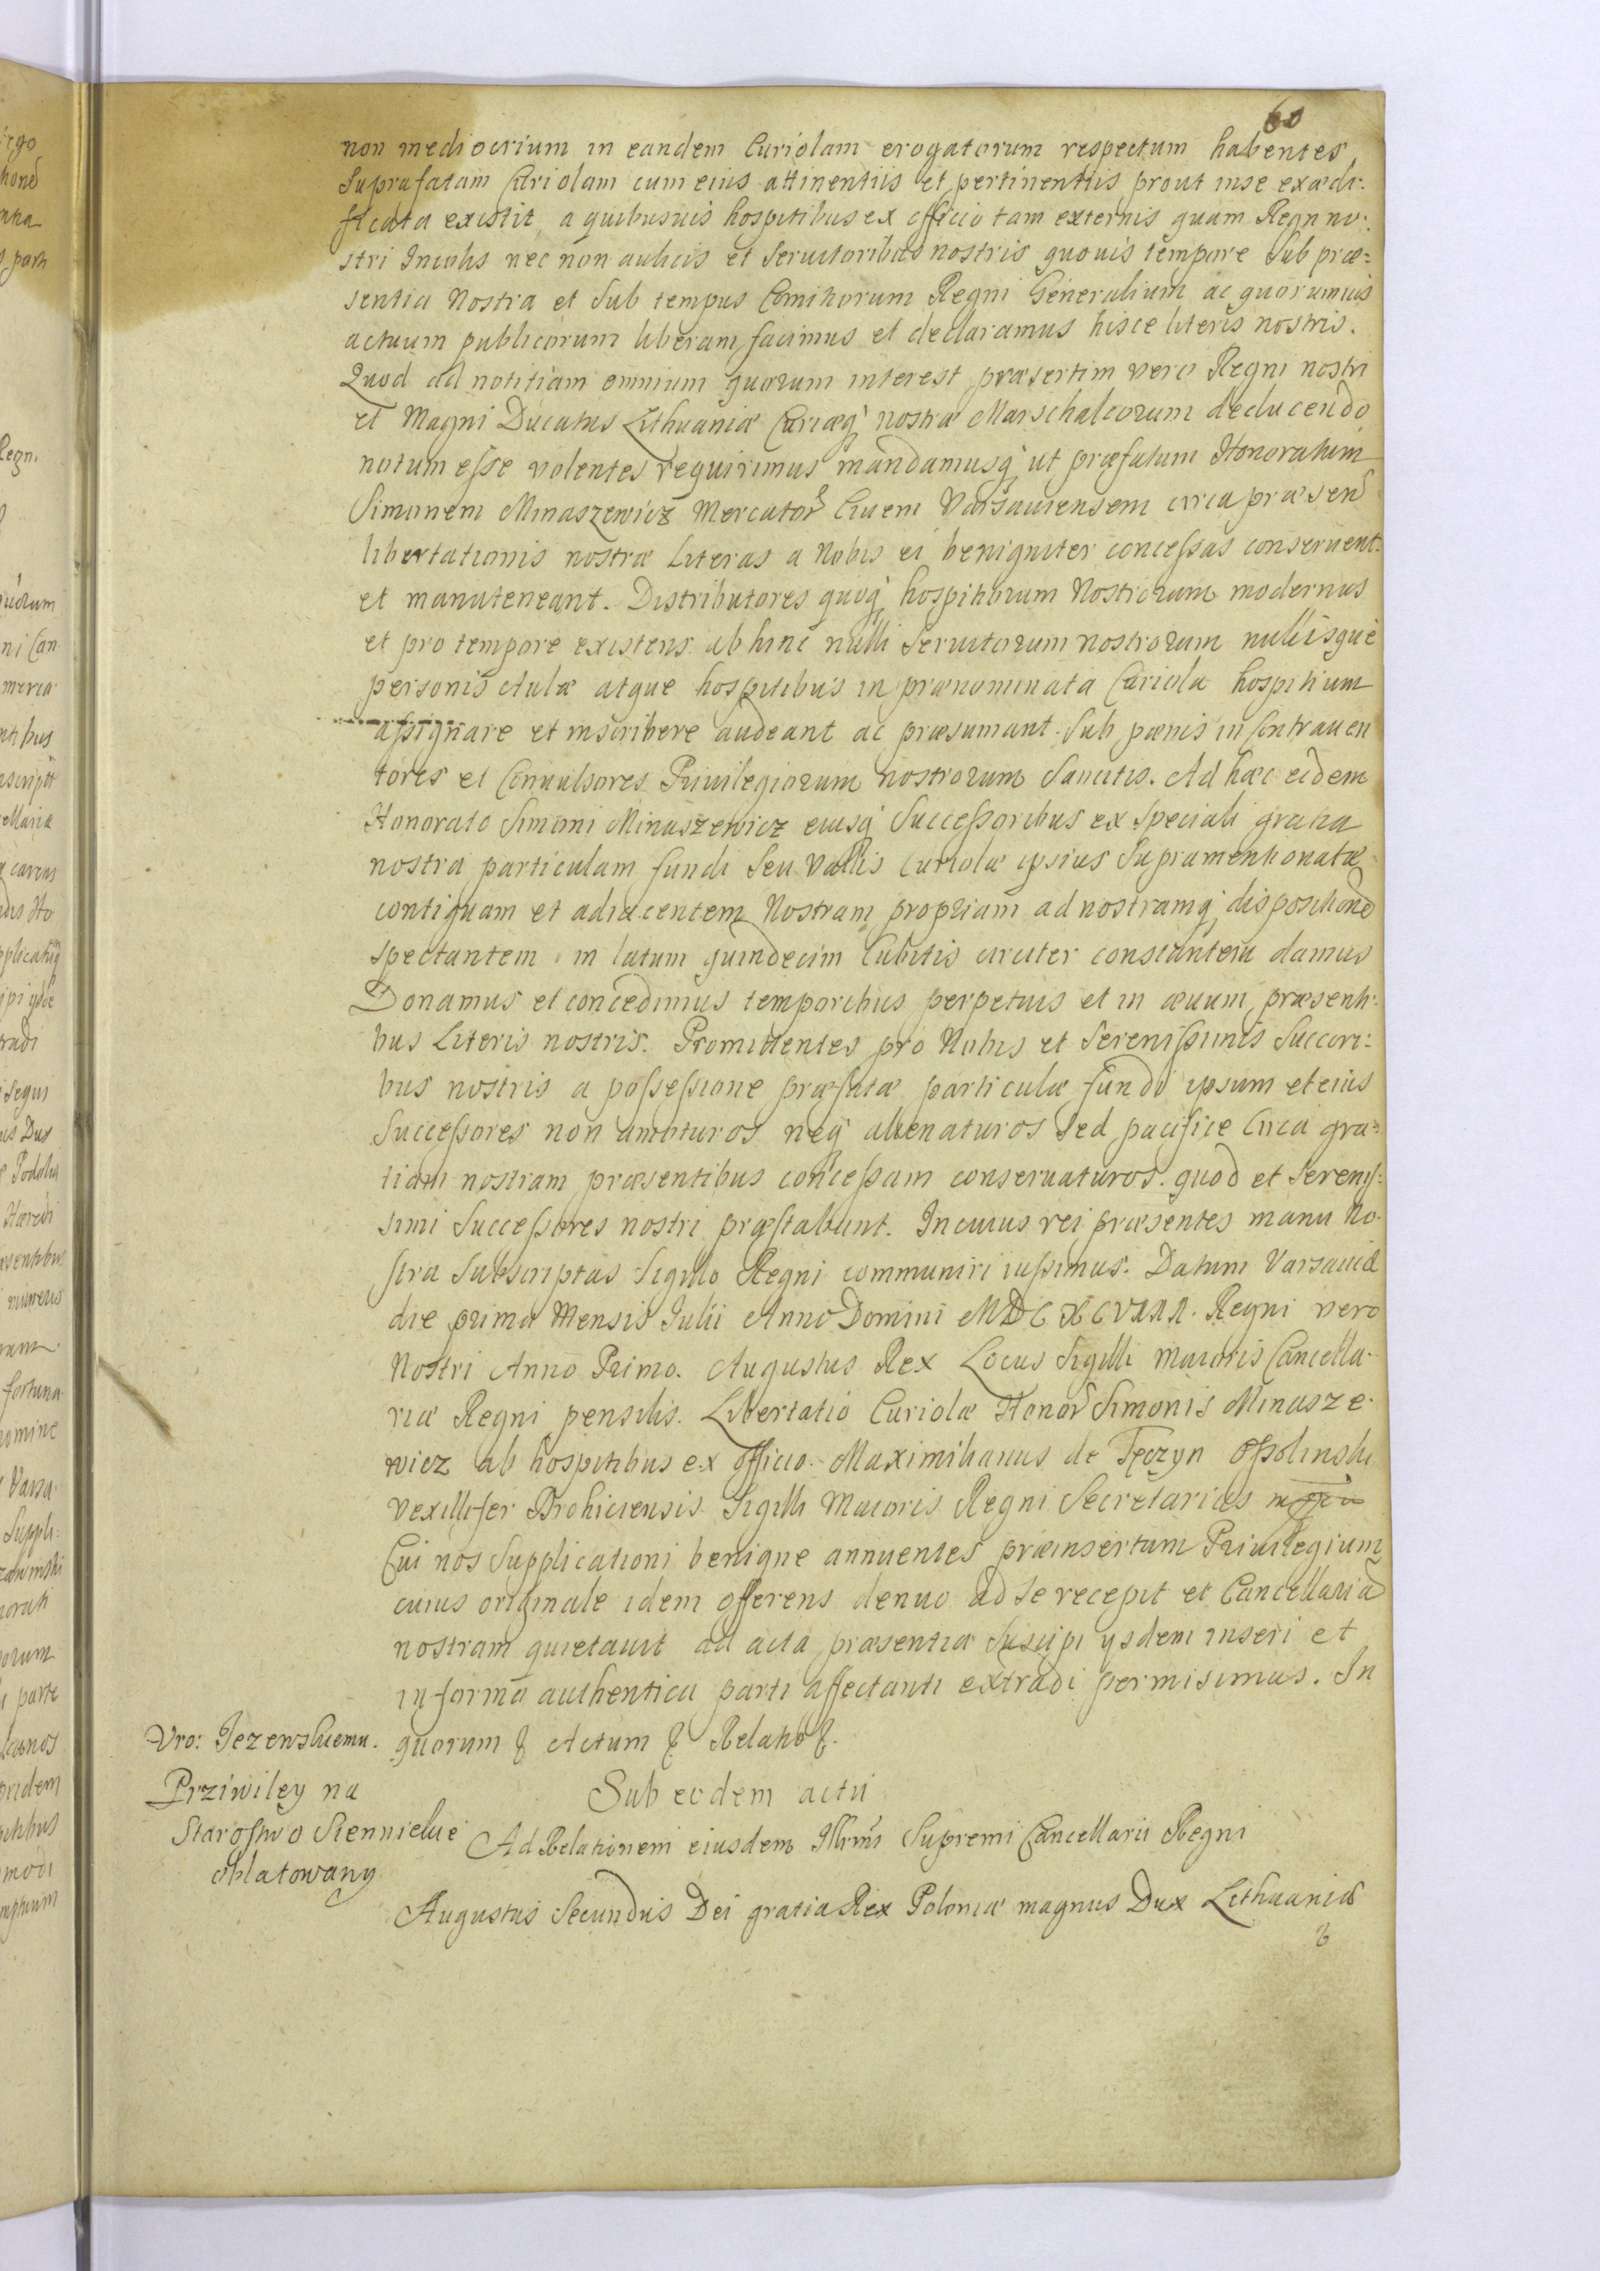 60
non mediocrium in eandem Curiolam erogatorum respectum habentes,
Suprafatam Curiolam cum eius attinentiis et pertinentiis prout in se exædi:
ficata existit, a quibusuis hospitibus ex officio tam externis quam Regn no:
stri Incolis nec non aulicis et Seruitoribus nostris quouis tempore Sub præ:
sentia Nostra et Sub tempus Comitiorum Regni Generalium ac quorumuis
actuum publicorum liberam facimus et declaramus hisce literis nostris.
Quod ad notitiam omnium quorum interest præsertim vero Regni nostri
et Magni Ducatus Lithuaniæ Curiæq nostræ Marschalcorum deducendo
notum esse volentes requirimus mandamusq ut præfatum Honoratum
Simonem Minaszewicz Mercator Ciuem Varsauiensem circa præsen
libertationis nostræ Literas a Nobis ei benigniter concessas conseruent
et manuteneant. Distributores quoq hospitiorum Nostrorum modernus
et pro tempore existens ab hinc nulli Seruitorum nostrorum nullisque
personis Aulæ atque hospitibus in prænominata Curiola hospitium
assignare et inscribere audeant ac præsumant. Sub pænis in Contrauen
tores et Conuulsores Priuilegiorum nostrorum Sancitis. Ad hæc eidem
Honorato Simoni Minaszewicz eiusq Successoribus ex Speciali gratia
nostra particulam fundi Seu Vallis Curiolæ ipsius Supramentionatæ
contiguam et adiacentem Nostram propriam ad nostramq dispositione
spectantem in latum quindecim Cubitis circiter constantem damus
Donamus et concedimus temporibus perpetuis et in æuum præsenti:
bus Literis nostris. Promittentes pro Nobis et Serenissimis Succori:
bus nostris a possessione præfatæ particulæ fundi ipsum et eius
Successores non amoturos neq alienaturos Sed pacifice Circa gra:
tiam nostram præsentibus concessam conseruaturos. quod et Serenis:
simi Successores nostri præstabunt. In cuius rei præsentes manu No:
stra Subscriptas Sigillo Regni communiri iussimus. Datum Varsauiæ
die prima Mensis Iulii Anno Domini MDCXCVIII. Regni vero
Nostri Anno Primo. Augustus Rex Locus Sigilli Maioris Cancella:
riæ Regni pensilis. Libertatio Curiolæ Honor Simonis Minasze:
wicz ab hospitibus ex officio. Maximilianus de Tęczyn Ossolinski
Vexillifer Drohiciensis Sigilli Maioris Regni Secretarius mpp
Cui nos Supplicationi benigne annuentes præinsertum Priuilegium
cuius originale idem offerens denuo ad se recepit et Cancellaria
nostram quietauit ad acta præsentia Suscipi ysdem inseri et
in forma authentica parti affectanti extradi permisimus. In
quorum & Actum & Relatio &.
Vro: Jezewskiemu.
Prziwiley na
Starostwo Siennickie
oblatowany
Sub eodem actu
Ad Relationem eiusdem Illrmi Supremi Cancellarii Regni
Augustus Secundus Dei gratia Rex Poloniæ magnus Dux Lithuaniæ
&